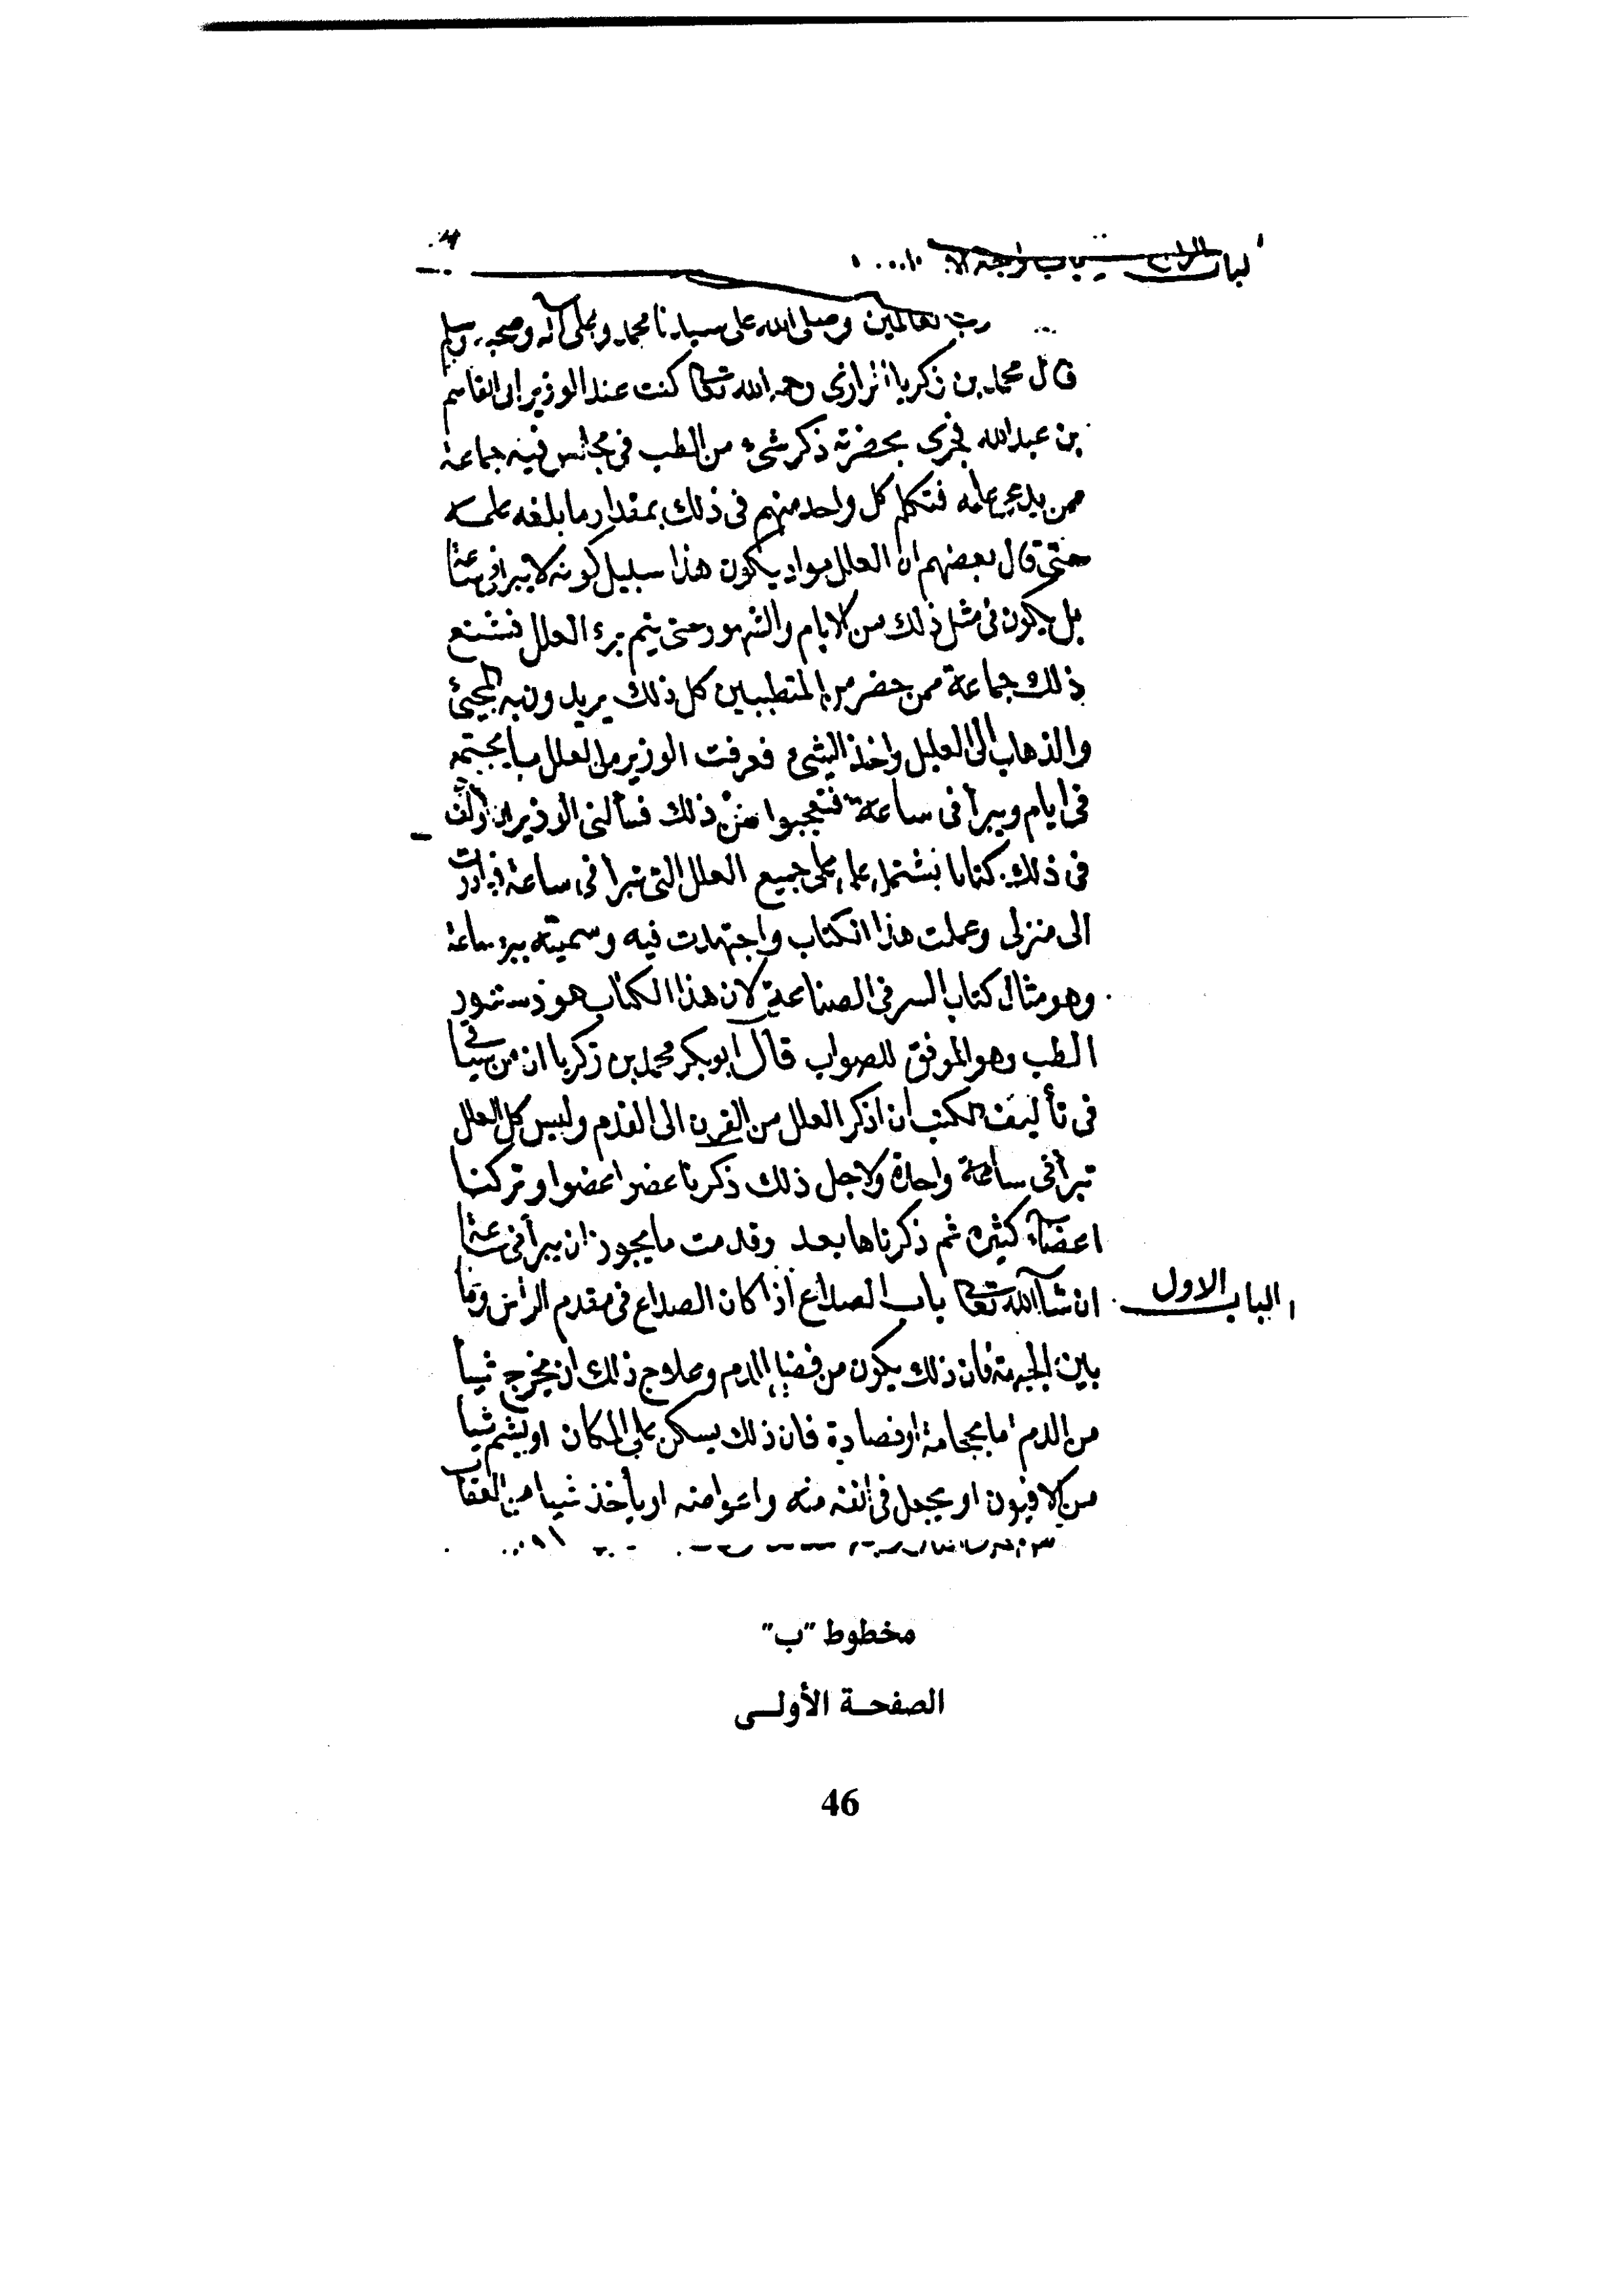 رب العالمين وصلى الله على سيدنا محمد وعلى آله وصحبه وسلم
قال محمد بن زكريا الرازى رحمه الله تعالى كنت عند الوزير ابى القاسم
بن عبدالله فجرى بحضرته ذكر شئ من الطب فى مجلس فيه جماعة
ممن يدعى علمه فتكلم كل واحد منهم فى ذلك بمقدار ما بلغه علمه
حتى قال بعضهم ان العلل مواد يكون هذا سبيل كونه لا يبرا فى ساعة
بل يكون فى مثل ذلك من الايام والشهور حتى يتم برء العلل فشنع
ذلك جماعة ممن حضر من المتطببين كل ذلك يريدون به المجئ
والذهاب الى العليل واخذ الشئ فعرفت الوزير من العلل ما يجتمع
فى ايام ويبرأ فى ساعة فتعجبوا من ذلك فسألنى الوزير ان اؤلف
فى ذلك كتابا يشتمل على جميع العلل التى تبرا فى ساعة فبادرت
الى منزلى وعملت هذا الكتاب واجتهدت فيه وسميته ببرء ساعة
وهو مثال كتاب السر فى الصناعة لان هذا الكتاب هو دستور
الطب وهو الموفق للصواب قال ابو بكر محمد بن زكريا ان من سياقى
فى تأليف الكتب ان اذكر العلل من القرن الى القدم وليس كل العلل
تبرأ فى ساعة واحدة ولاجل ذلك ذكرنا عضوا عضوا وتركنا
اعضاء كثيره ثم ذكرناها بعد وقدمت ما يجوز ان يبرأ فى ساعة
الباب الاول
ان شآ الله تعالى باب الصداع اذا كان الصداع فى مقدم الراس وما
بين الجبهة فان ذلك يكون من فضل الدم وعلاج ذلك ان يخرج شيأ
من الدم اما بحجامة او فصادة فان ذلك يسكن على المكان او يشم شيأ
من الافيون او يجعل فى انفه منه او يأخذ شيا من العقاب
مخطوط "ب"
الصفحة الأولى
46